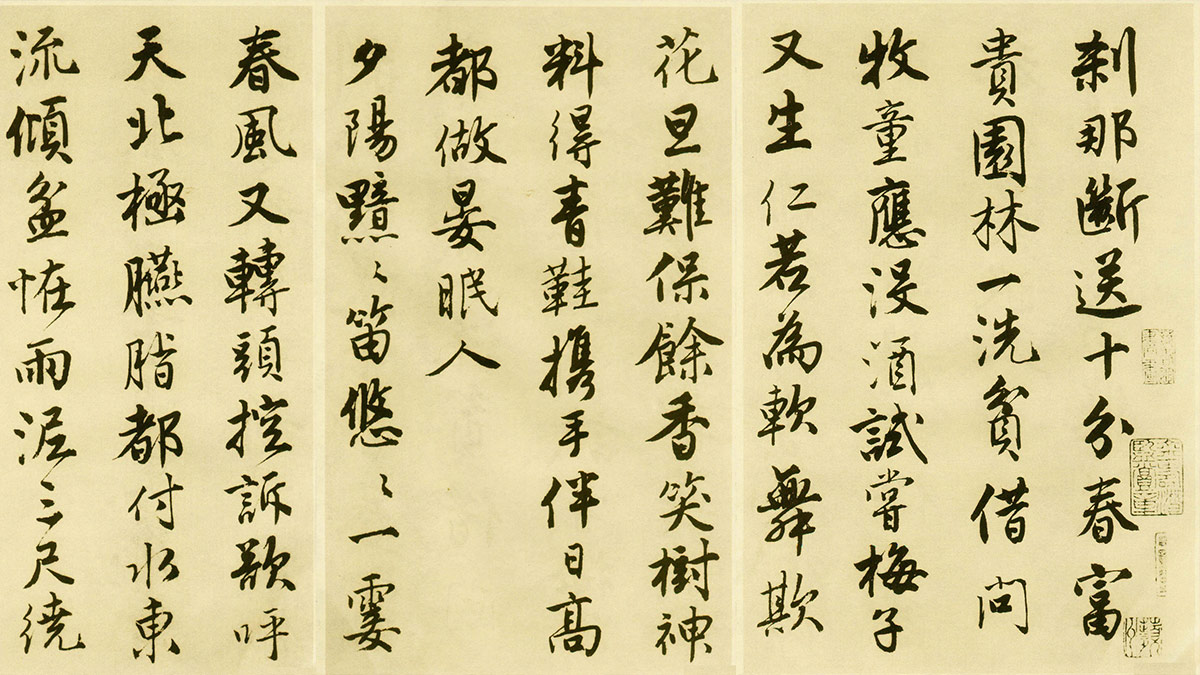 刹那斷送十分春富
貴園林一洗貧借问
牧童應没酒試嘗梅子
又生仁若為軟舞欺
花旦難保餘香笑樹神
料得青鞋携手伴日高
都做晏眠人
夕陽黯〻笛悠〻一霎
春風又轉頭控訴欲呼
天北極臙脂都付水東
流傾盆恠雨泥三尺繞